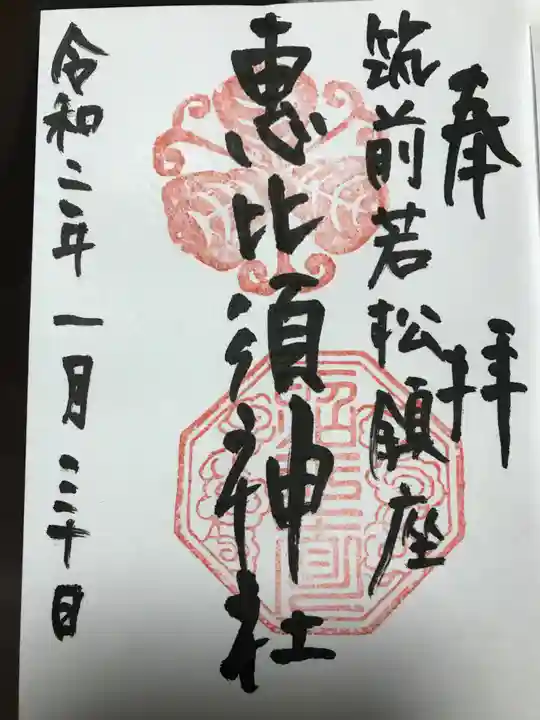 奉拝
筑前若松鎮座
恵比須神社
令和二年一月三十日